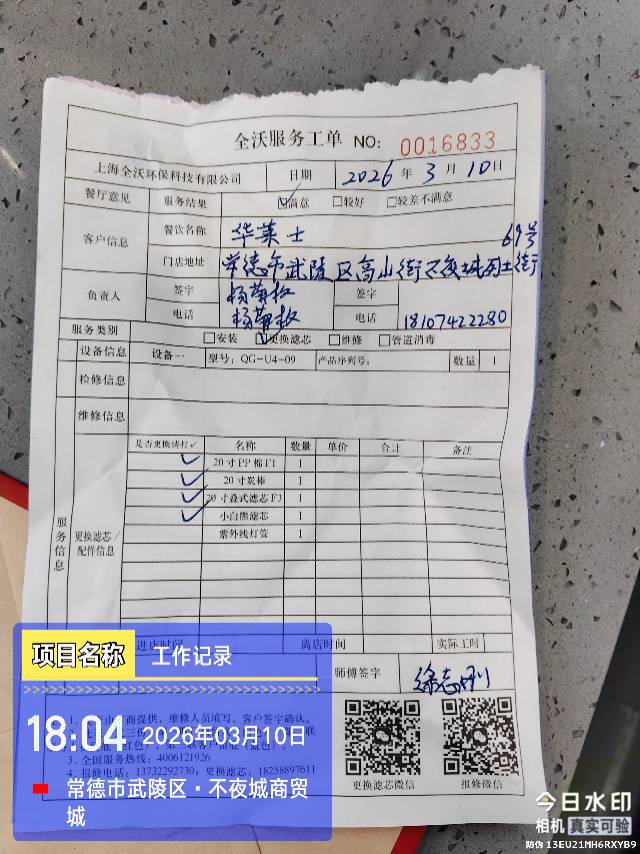 全沃服务工单 NO: 0016833
上海全沃环保科技有限公司 日期 2026 年 3 月 10 日
餐厅意见 服务结果 ☑满意 □较好 □较差不满意
客户信息 餐饮名称 华莱士
69号
门店地址 常德市武陵区高山街不夜城烈士街
负责人 签字 签字
电话 电话 18107422280
服务类别 □安装 ☑更换滤芯 □维修 □管道消毒
设备信息 设备一 型号: QG-U4-09 产品序列号: 数量 1
检修信息
维修信息
服务信息
更换滤芯/配件信息
是否更换请打✓ 名称 数量 单价 合计 备注
✓ 20寸PP棉F1 1
✓ 20寸炭棒 1
✓ 20寸叠式滤芯F3 1
✓ 小白熊滤芯 1
紫外线灯管 1
进店时间 离店时间 实际工时
师傅签字
商提供, 维修人员填写、客户签字确认。
3. 全国服务热线: 4006121926
4. 报修电话: 13732292730; 更换滤芯: 18258897611
更换滤芯微信 报修微信
项目名称 工作记录
18:04 2026年03月10日
常德市武陵区·不夜城商贸
城
今日水印
相机 真实可验
防伪 13EU21MH6RXYB9